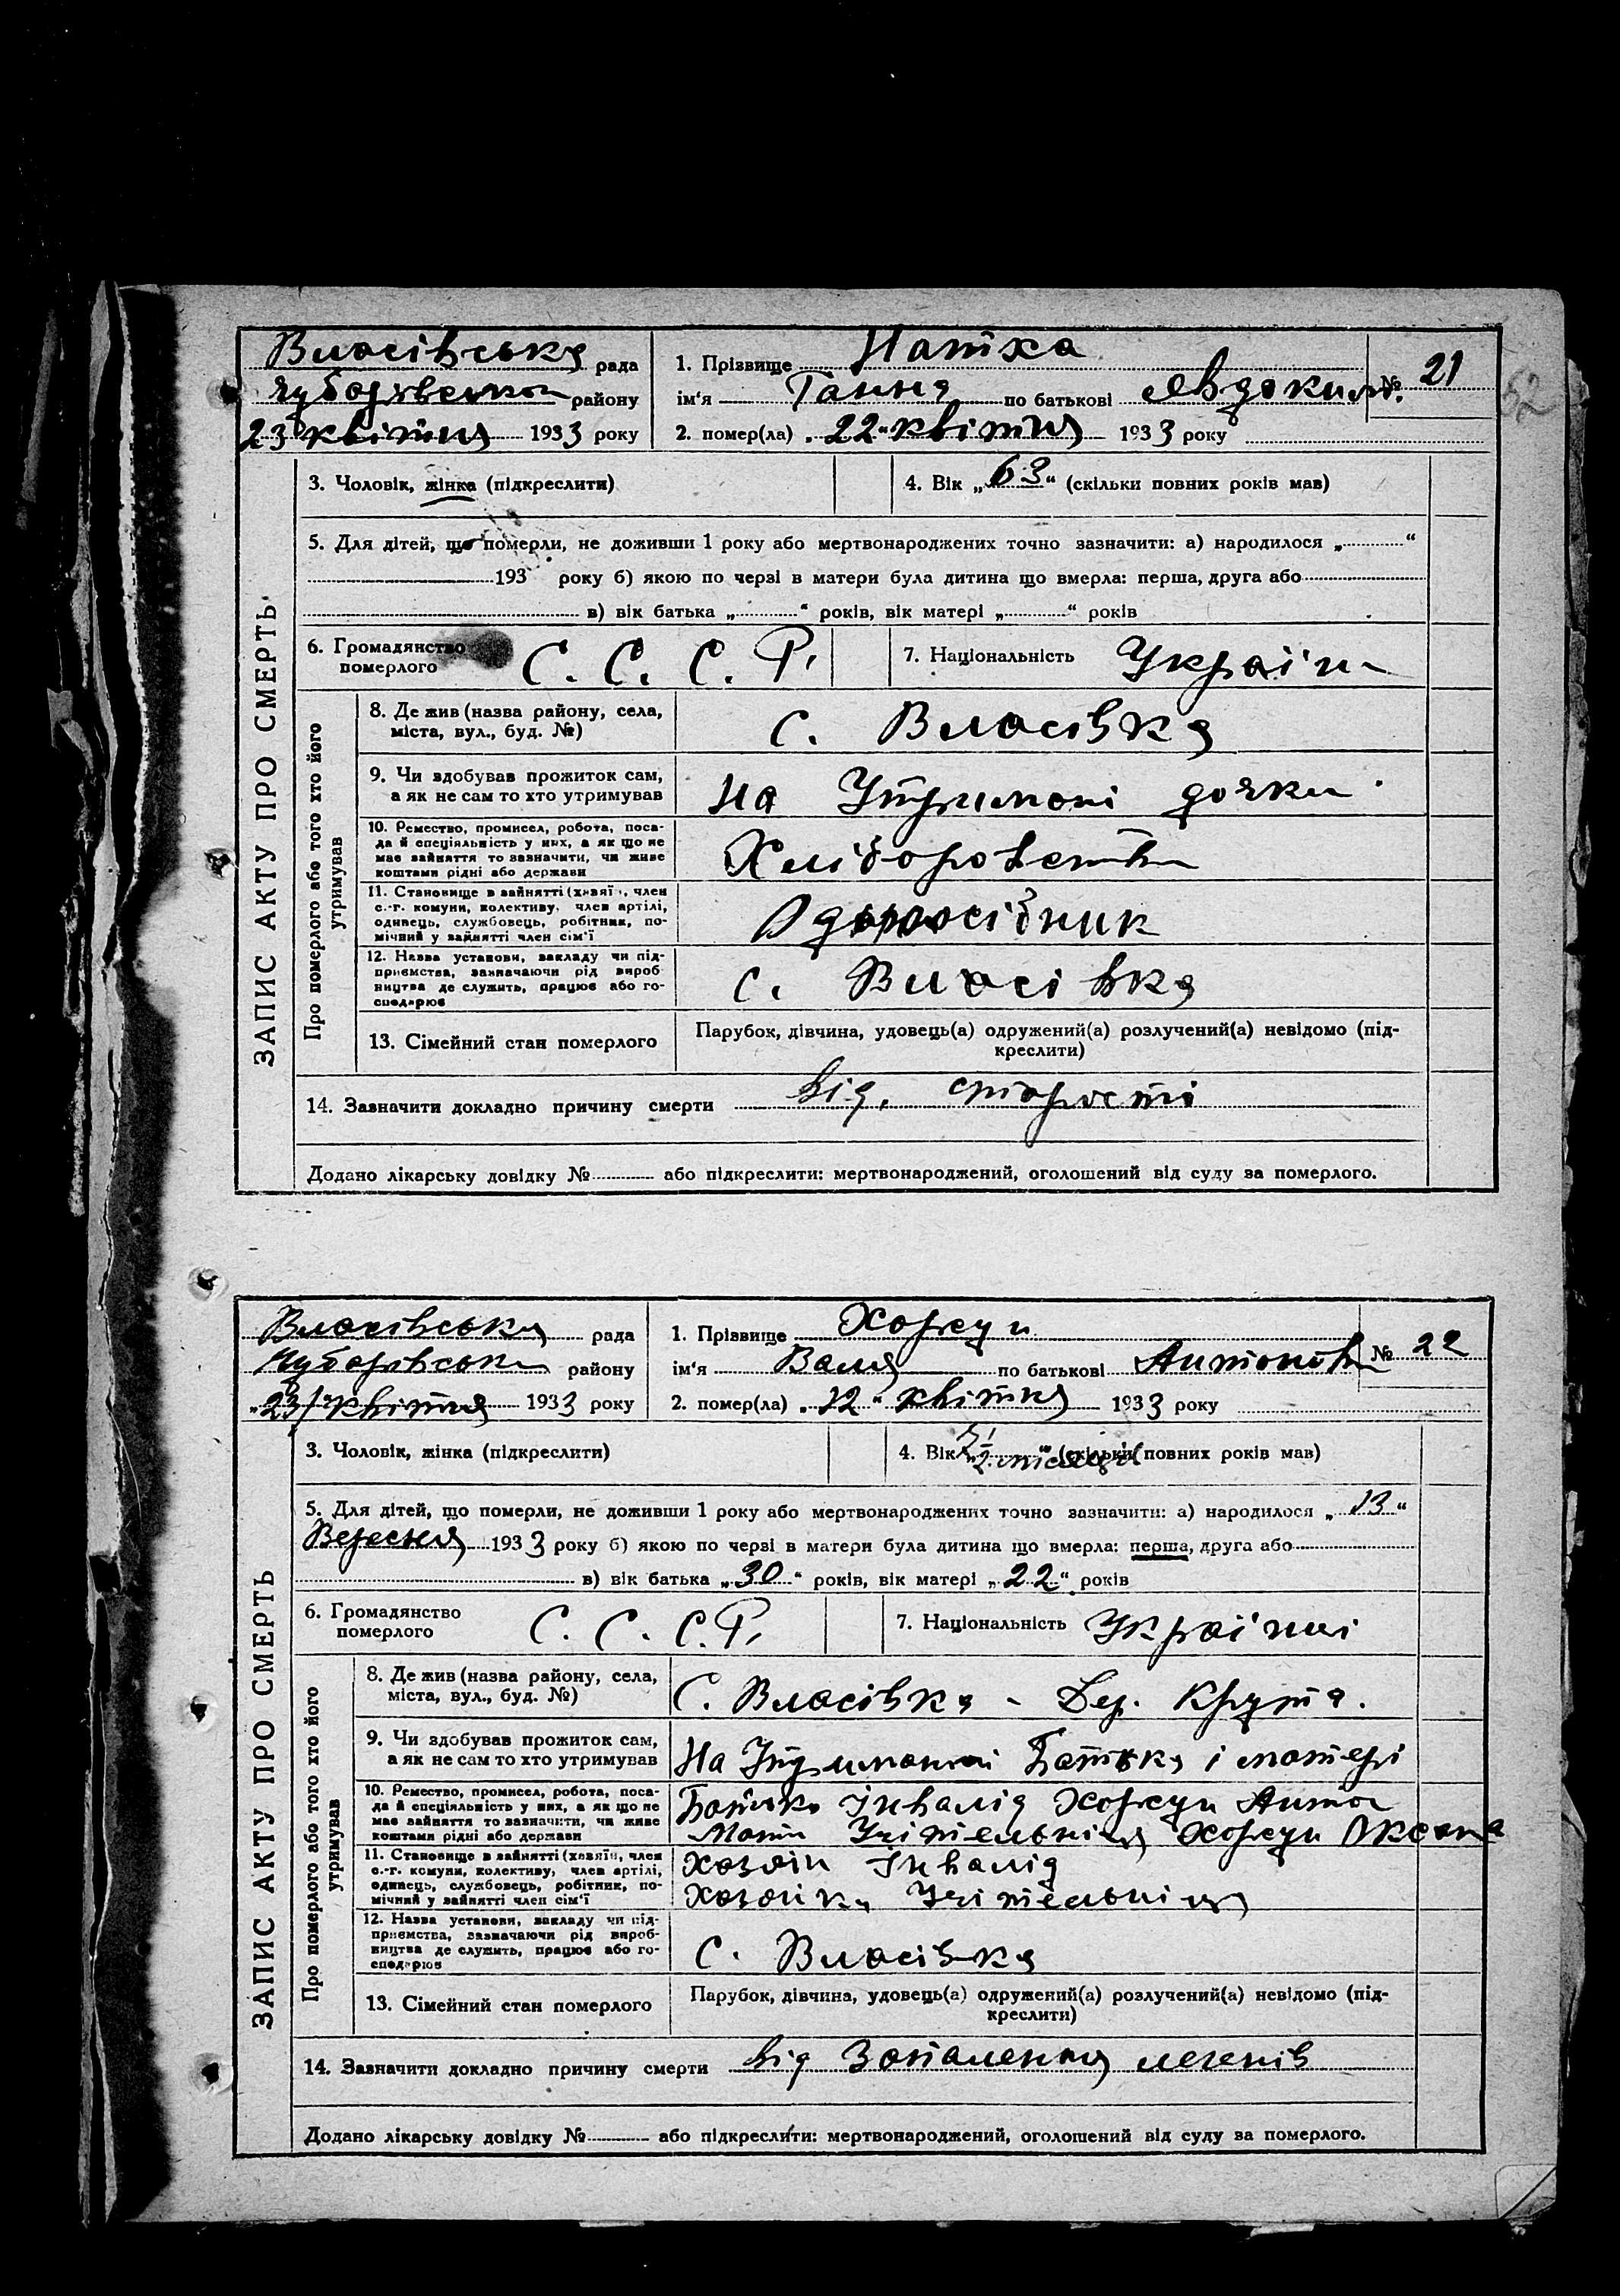 Власівська рада
Чубарівськ району
23 квітня 1933 року
1. Прізвище Натха № 21
ім'я Ганна по батькові Явдоким.
2. помер(ла) „22“ квітня 1933 року
62
ЗАПИС АКТУ ПРО СМЕРТЬ
3. Чоловік, жінка (підкреслити)
4. Вік „63“ (скільки повних років мав)
5. Для дітей, що померли, не доживши 1 року або мертвонароджених точно зазначити: а) народилося „ “
193 року б) якою по черзі в матери була дитина що вмерла: перша, друга або
в) вік батька „ “ років, вік матері „ “ років
6. Громадянство
померлого С. С. С. Р.
7. Національність Україн
Про померлого або того хто його
утримував
8. Де жив (назва району, села,
міста, вул., буд. №)
с. Власівка
9. Чи здобував прожиток сам,
а як не сам то хто утримував
на Утримані дочки
10. Ремество, промисел, робота, поса-
да й спеціяльність у них, а як що не
має зайняття то зазначити, чи живе
коштами рідні або держави
Хліборобств
11. Становище в зайнятті (хазяїн, член
с.-г. комуни, колективу, член артілі,
одинець, службовець, робітник, по-
мічний у зайнятті член сім'ї
Одноосібник
12. Назва установи, закладу чи під-
приємства, зазначаючи рід вироб
ництва де служить, працює або го-
сподарює
с. Власівка
13. Сімейний стан померлого
Парубок, дівчина, удовець(а) одружений(а) розлучений(а) невідомо (під-
креслити)
14. Зазначити докладно причину смерти від. старості
Додано лікарську довідку № або підкреслити: мертвонароджений, оголошений від суду за померлого.
Власівська рада
Чубарівськ району
„23/ квітня 1933 року
1. Прізвище Хоржун № 22
ім'я Валя по батькові Антонов
2. помер(ла) „12“ квітня 1933 року
ЗАПИС АКТУ ПРО СМЕРТЬ
3. Чоловік, жінка (підкреслити)
4. Вік „ “ місяців (скільки повних років мав)
5. Для дітей, що померли, не доживши 1 року або мертвонароджених точно зазначити: а) народилося „13“
Вересня 1933 року б) якою по черзі в матери була дитина що вмерла: перша, друга або
в) вік батька „30“ років, вік матері „22“ років
6. Громадянство
померлого С. С. С. Р.
7. Національність Україн
Про померлого або того хто його
утримував
8. Де жив (назва району, села,
міста, вул., буд. №)
С. Власівка - Дер. Крута.
9. Чи здобував прожиток сам,
а як не сам то хто утримував
На Утриманні Батька і матері
10. Ремество, промисел, робота, поса-
да й спеціяльність у них, а як що не
має зайняття то зазначити, чи живе
коштами рідні або держави
Батько Інвалід Хоржун Антон
Мати Учітельніця Хоржун Оксана
11. Становище в зайнятті (хазяїн, член
с.-г. комуни, колективу, член артілі,
одинець, службовець, робітник, по-
мічний у зайнятті член сім'ї
Хозяін Інвалід
Хозяйка Учітельніця
12. Назва установи, закладу чи під-
приємства, зазначаючи рід вироб-
ництва де служить, працює або го-
сподарює
с. Власівка
13. Сімейний стан померлого
Парубок, дівчина, удовець(а) одружений(а) розлучений(а) невідомо (під-
креслити)
14. Зазначити докладно причину смерти від Запалення легенів
Додано лікарську довідку № або підкреслити: мертвонароджений, оголошений від суду за померлого.